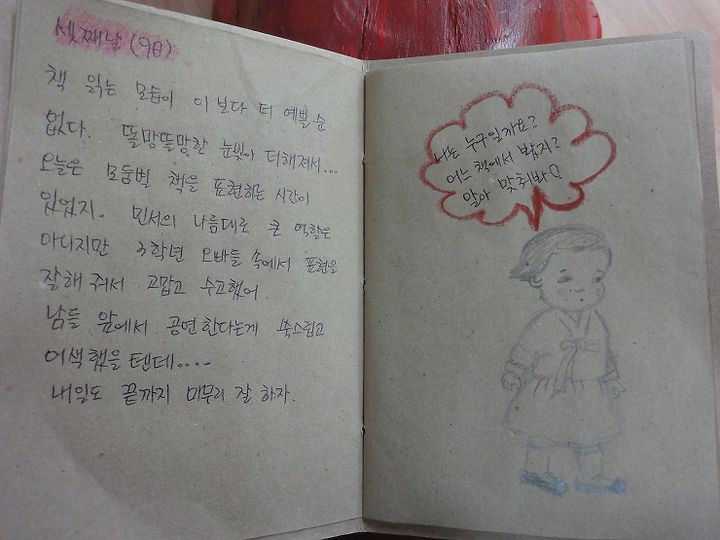 셋째날 (9日)
책 읽는 모습이 이보다 더 예쁠순
없다. 똘망똘망한 눈빛이 더해져서...
오늘은 모둠별 책을 표현하는 시간이
있었지. 민서의 나름대로 큰 역할은
아니지만 3학년 오빠들 속에서 표현을
잘해 줘서 고맙고 수고했어.
남들 앞에서 공연한다는게 쑥스럽고
어색했을 텐데....
내일도 끝까지 마무리 잘 하자.
나는 누구일까요?
어느 책에서 봤지?
알아 맞춰봐요